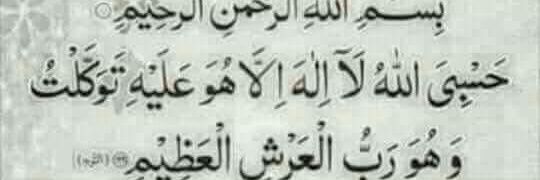 بِسْمِ اللّٰهِ الرَّحْمٰنِ الرَّحِيْمِ
حَسْبِىَ اللّٰهُ لَآ اِلٰهَ اِلَّا هُوَ عَلَيْهِ تَوَكَّلْتُ
وَهُوَ رَبُّ الْعَرْشِ الْعَظِيْمِ (التوبة)